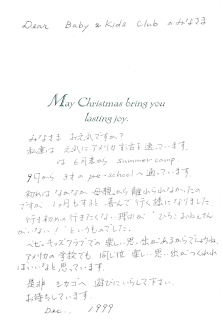 Dear Baby & Kids Club のみなさま
May Christmas bring you
lasting joy.
みなさま お元気ですか?
私達は 元気に アメリカ生活を 送っています。
は 6月末から summer camp.
9月から 3才の pre-school へ 通っています
初めは なかなか 母親から 離れられなかったの
ですが 1ヶ月もすると 喜んで 行く様になりました。
行き初めの 行きたくない 理由が
いない!" というものでした。
ベビーキッズクラブでの 楽しい 思い出があるからでしょうね。
アメリカの 学校でも 同じ位 楽しい 思い出が つくれれば
いいなと 思っています。
是非 シカゴへ 遊びにいらして下さい。
お待ちしています。
Dec. 1999